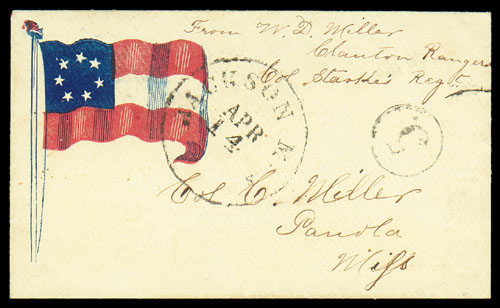 From W. D. Miller
Clanton Rangers
Col Starke's Regt
JACKSON M
APR
14
5
Col. C. Miller
Panola
Miss